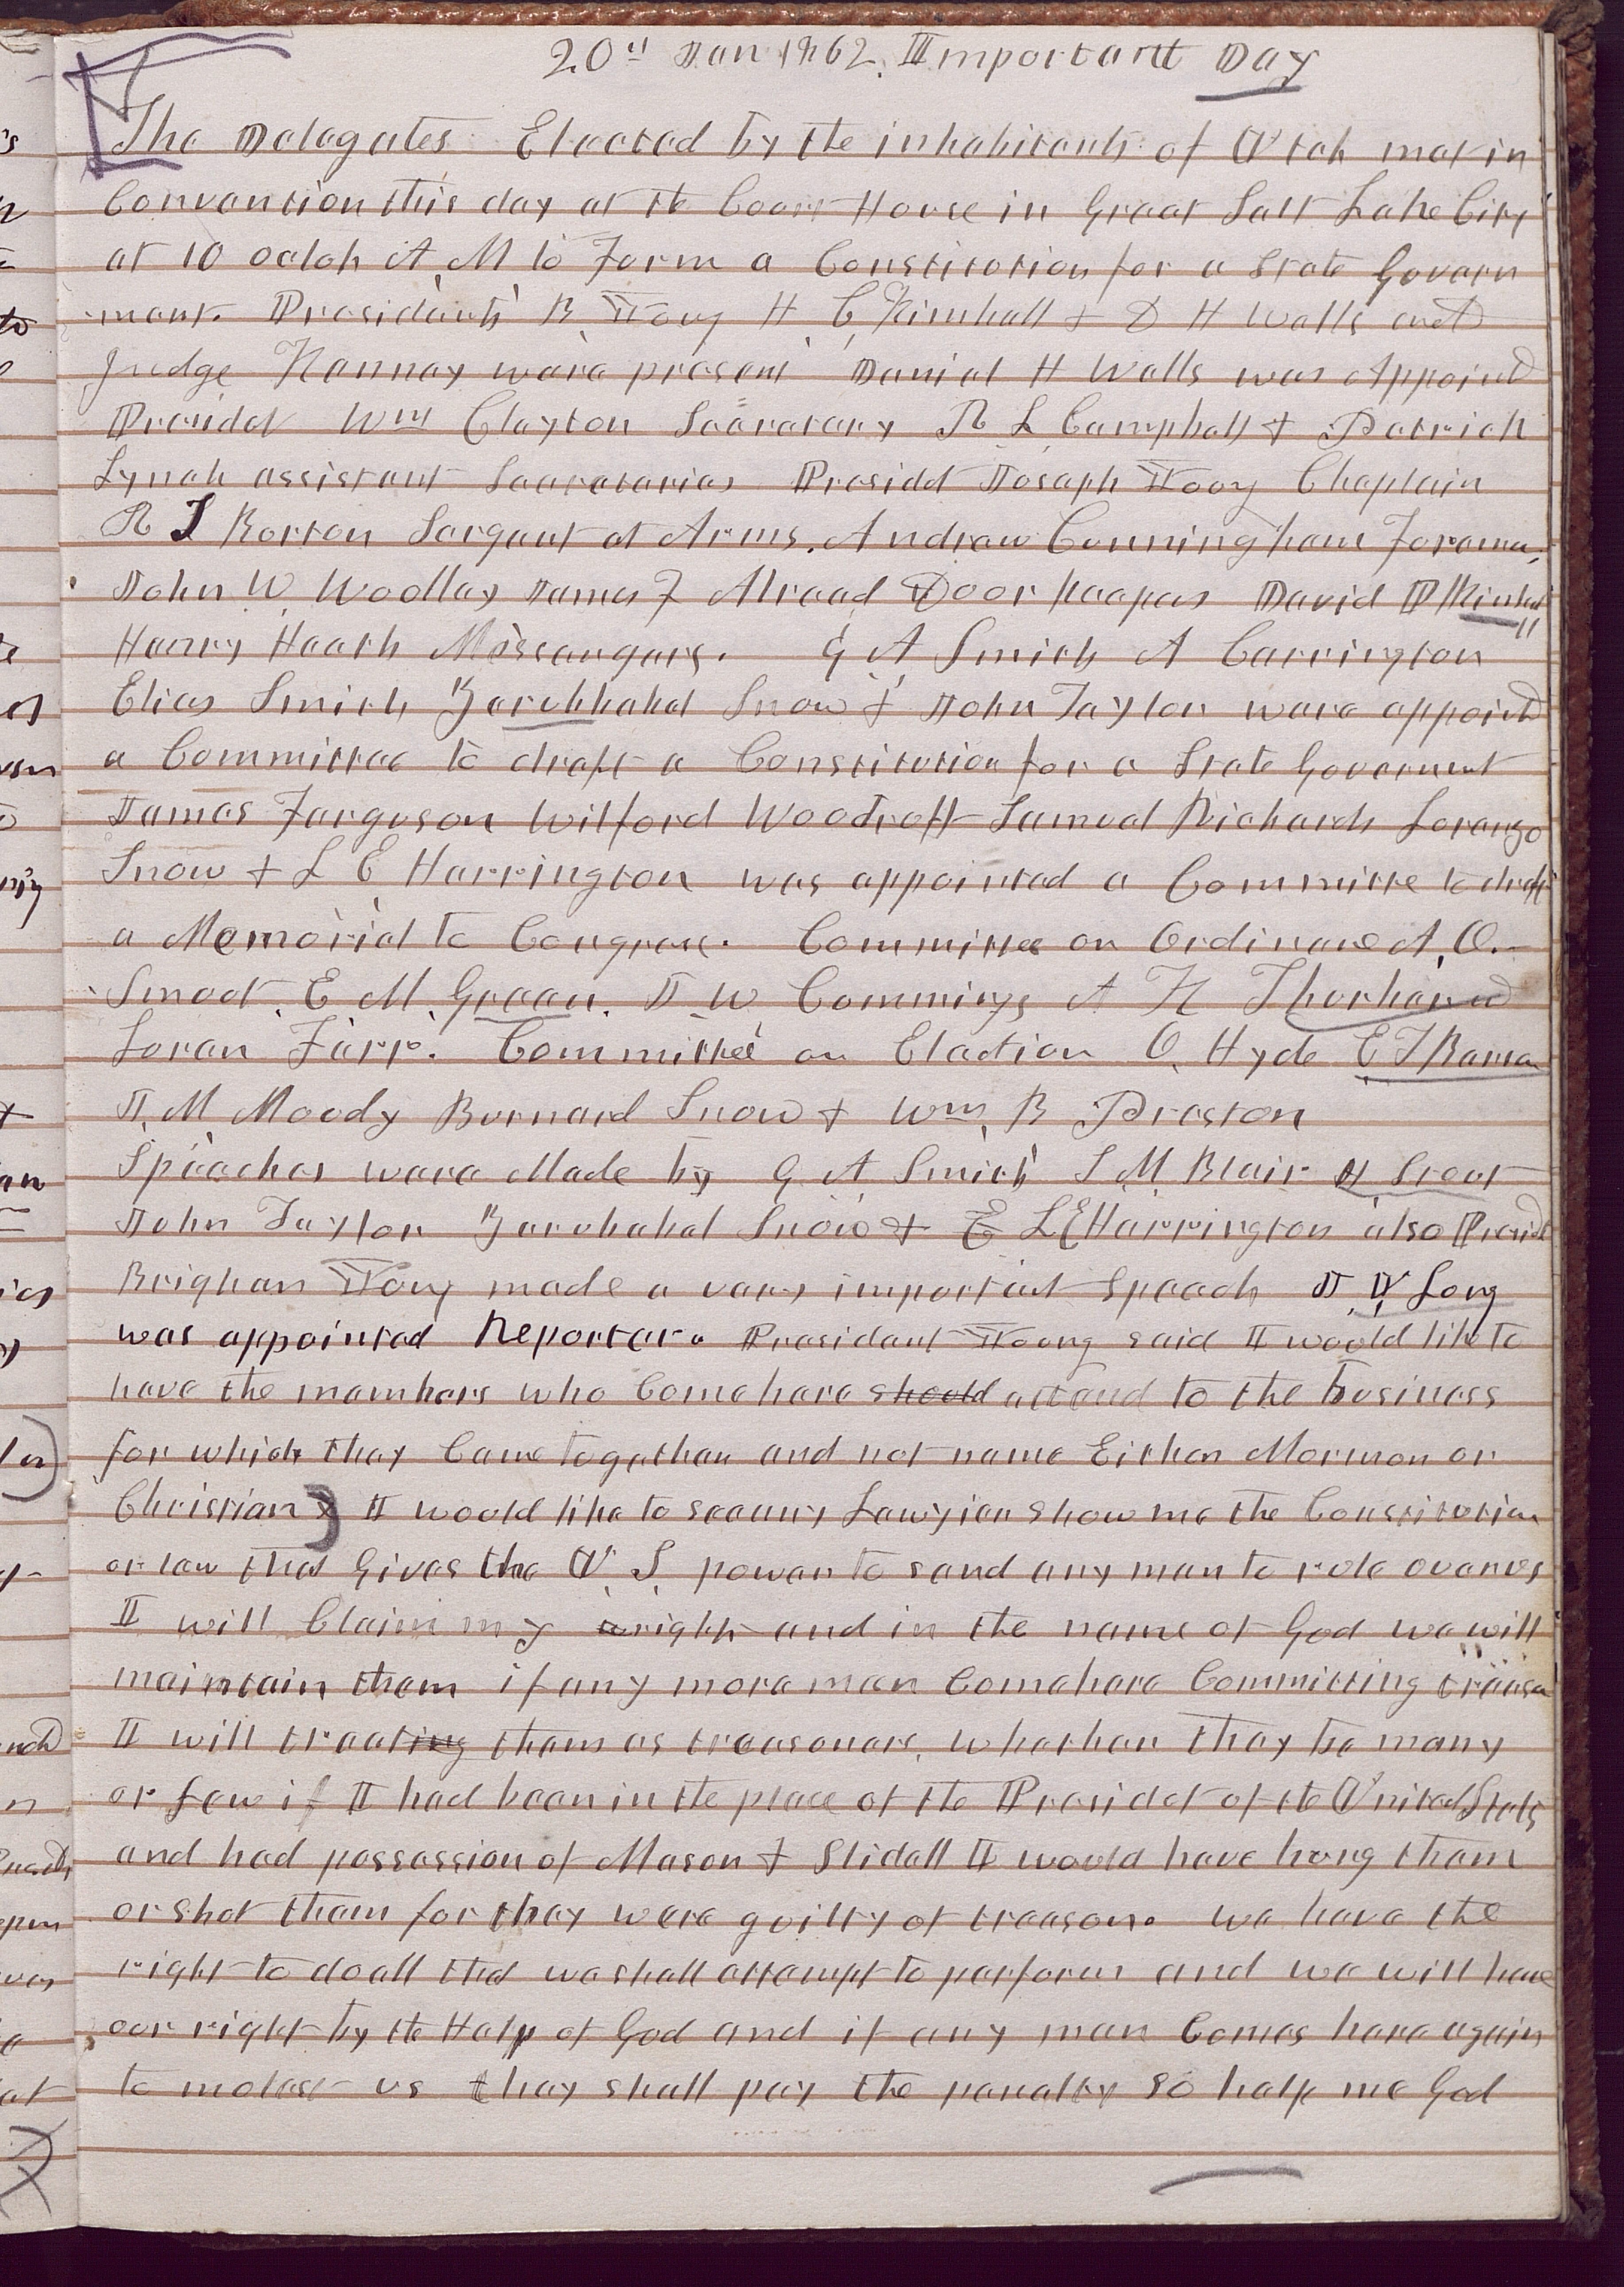 20th Jan 1862. Important Day
The Delegates Elected by the inhabitants of Utah met in
Convention this day at the Court House in Great Salt Lake City
at 10 oclok A M to Form a Constitution for a State Govern
ment. Presidents B Young H C Kimball + D H Wells and
Judge Kenney were present Daniel H Wells was Appoint
Presidet Wm Clayton Secretary R L Campbell + Patrick
Lynch assistant Secretaries Presidet Joseph Young Chaplain
R T Borton Sargent at Arms. Andrew Cunningham Foreman
John W Woolley James F Alread Door keepers David P Kimball
Henry Heath Messengers. G A Smith A Carrington
Elias Smith Zerubbabel Snow + John Taylor were appoint
a Committee to draft a Constitution for a State Goverment
James Ferguson Wilford Woodruff Samuel Richards Lorenzo
Snow + L E Harrington was appointed a Committe to draft
a Memorial to Congress. Committee on Ordinance A. O.
Smoot. E. M. Green. J W Cummings A K Thurber and
Loran Farr. Committee on Election O. Hyde E T Benson
J. M Moody Bernard Snow + Wm. B Preston
Speaches were Made by G A Smith S M Blair H Stout
John Taylor Zerubabel Snow + E L E Harrington also Preside
Brigham Young made a very important Speech J V Long
was appointed Reporter. President Young said I would like to
have the members who Come here should attend to the business
for which they Came together and not name Either Mormon or
Christian I would like to see any Lawyier show me the Constitution
or law that Gives the U. S. power to send any man to rule over us
I will Claim my rights and in the name of God we will
maintain them if any more men Come here Committing treason
I will treating them as treasoners. whether they be many
or few if I had been in the place of the Presidet of the United States
and had possession of Mason + Slidell I would have hung them
or shot them for they were guilty of treason. we have the
right to do all that we shall attempt to perform and we will have
our right by the Help of God and if any man Comes here again
to molest us they shall pay the penalty so help me God